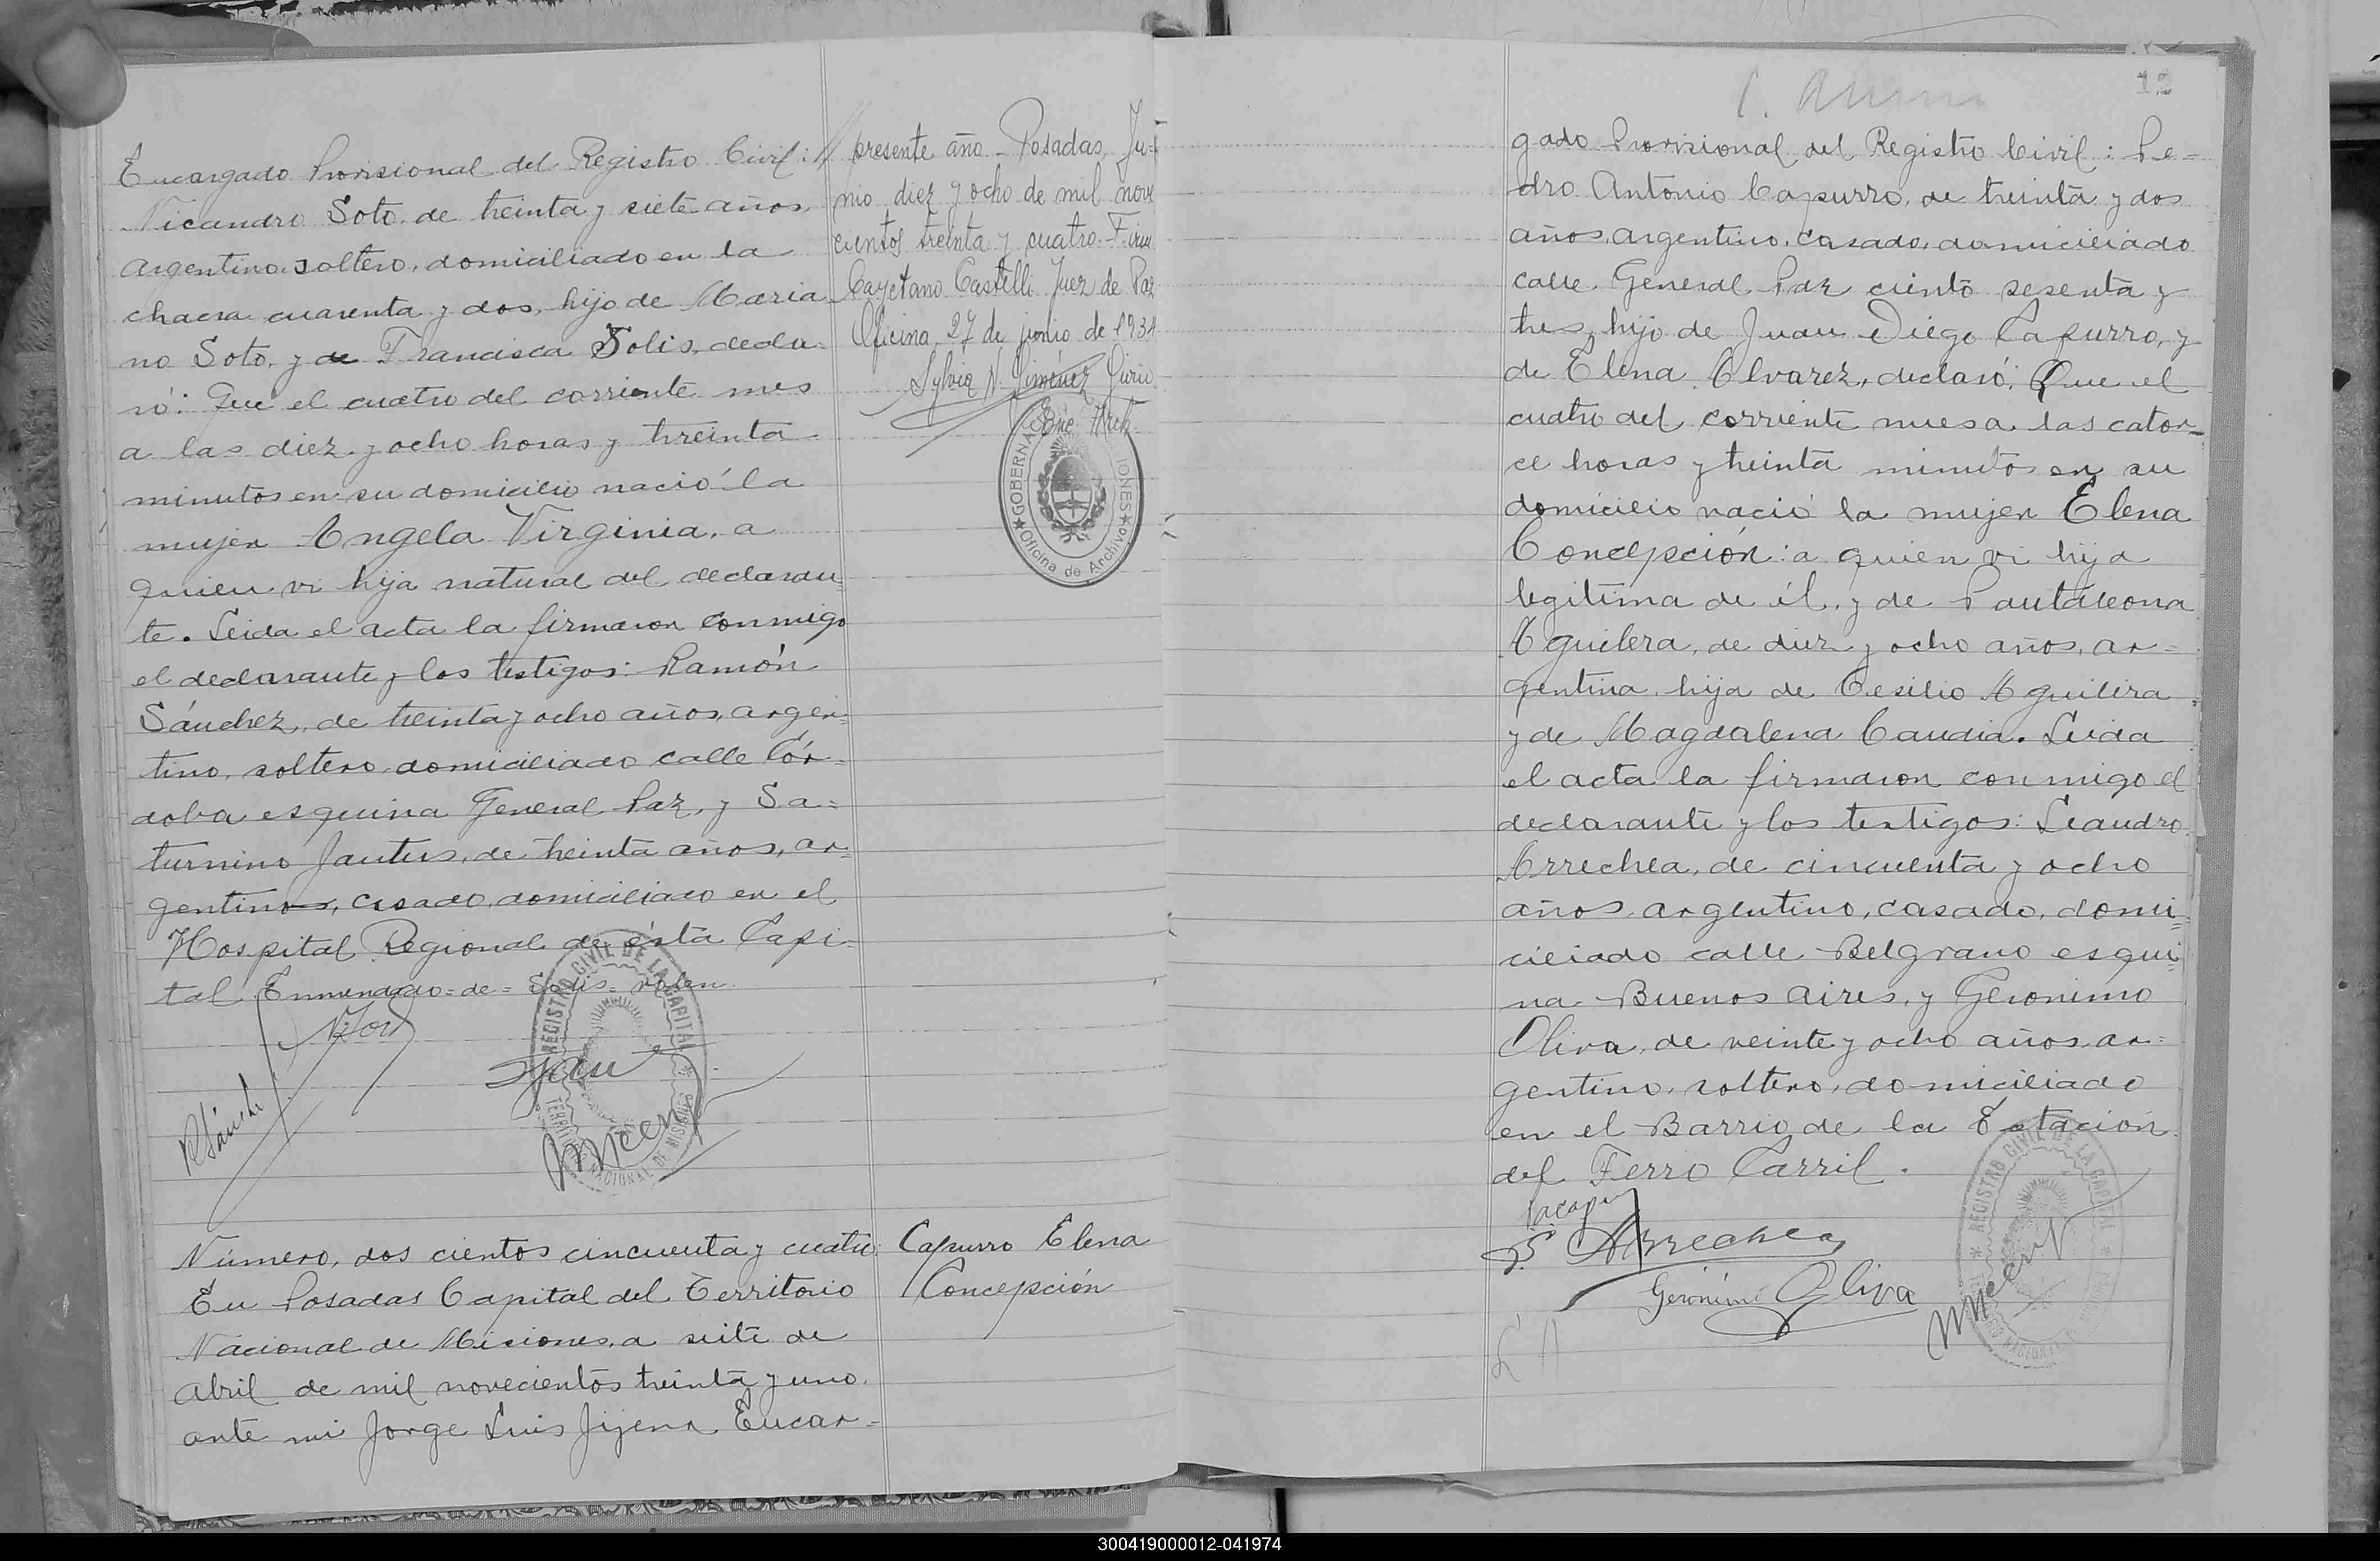 Encargado Provisional del Registro Civil:
Nicandro Soto, de treinta y siete años,
argentino, soltero, domiciliado en la
chacra cuarenta y dos, hijo de Maria
no Soto, y de Francisca Solis, decla-
ró: Que el cuatro del corriente mes
a las diez y ocho horas y treinta
minutos en su domicilio nació la
mujer Angela Virginia, a
quien vi hija natural del declaran=
te. Leida el acta la firmaron conmigo
el declarante y los testigos: Ramón
Sánchez, de treinta y ocho años, argen=
tino, soltero, domiciliado calle Cór=
doba esquina General Paz, y Sa=
turnino Jantus, de treinta años, ar=
gentino, casado, domiciliado en el
Hospital Regional de ésta Capi-
tal Enmendado=de=Solis=valen
RSánche
REGISTRO CIVIL DE LA CAPITAL
TERRITORIO NACIONAL DE MISIONES
Número, dos cientos cincuenta y cuatro
En Posadas Capital del Territorio
Nacional de Misiones, a siete de
Abril de mil novecientos treinta y uno.
ante mi Jorge Luis Jijena Encar=
// presente año - Posadas, Ju=
nio diez y ocho de mil nove
cientos treinta y cuatro-Firm
Cayetano Castelli Juez de Paz
Oficina, 27 de junio de 1934
Sylvia N. Giménez
Enc. Arch.
GOBERNA IONES
Oficina de Archivo
Capurro Elena
Concepción
12
gado Provisional del Registro Civil: Pe=
dro Antonio Capurro, de treinta y dos
años, argentino, casado, domiciliado
calle General Paz ciento sesenta y
tres, hijo de Juan Diego Capurro, y
de Elena Alvarez, declaró: Que el
cuatro del corriente mes a las cator-
ce horas y treinta minutos en su
domicilio nació la mujer Elena
Concepción: a quien vi hija
legitima de él, y de Pantaleona
Aguilera, de diez y ocho años, ar=
gentina, hija de Cesilio Aguilera
y de Magdalena Candia. Leida
el acta la firmaron conmigo el
declarante y los testigos: Leandro
Arrechea, de cincuenta y ocho
años, argentino, casado, domi=
ciliado calle Belgrano esqui=
na Buenos Aires, y Geronimo
Oliva, de veinte y ocho años, ar=
gentino, soltero, domiciliado
en el Barrio de la Estación
del Ferro Carril.
Arrechea
Gerónimo Oliva
REGISTRO CIVIL DE LA CAPITAL
L A
300419000012-041974